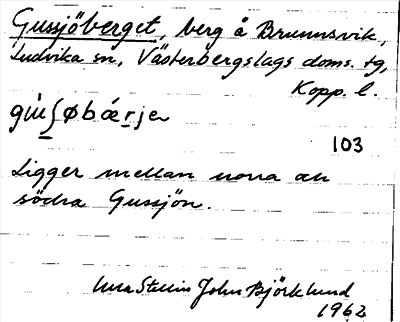 Gussjöberget, berg å Brunnsvik,
Ludvika sn, Västerbergslags doms. tg,
Kopp. l.
103
Ligger mellan norra och
södra Gussjön.
John Björklund
1962